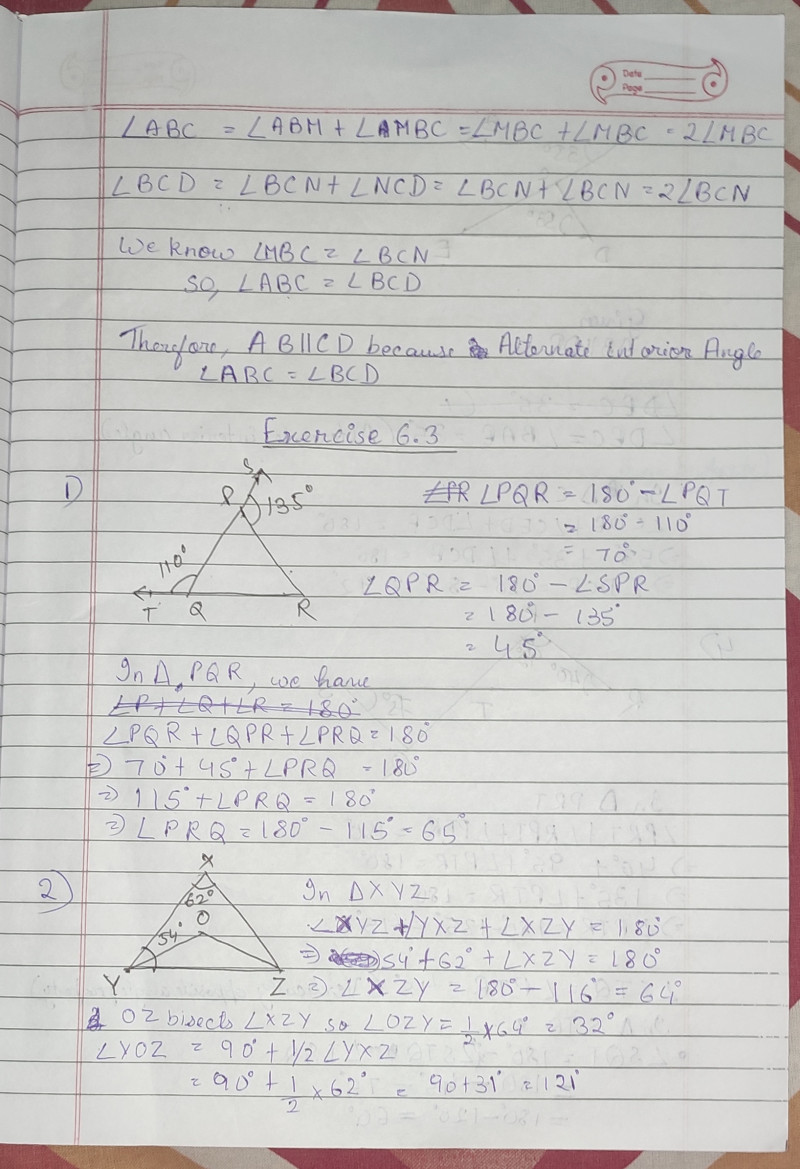 Date
Page
∠ABC = ∠ABM + ∠MBC = ∠MBC + ∠MBC = 2∠MBC
∠BCD = ∠BCN + ∠NCD = ∠BCN + ∠BCN = 2∠BCN
We know ∠MBC = ∠BCN
SO, ∠ABC = ∠BCD
Therefore, AB||CD because Alternate interior Angle
∠ABC = ∠BCD
Exercise 6.3
1)
S
P 135°
110°
T Q R
∠PQR = 180° - ∠PQT
= 180° - 110°
= 70°
∠QPR = 180° - ∠SPR
= 180° - 135°
= 45°
In Δ PQR, we have
∠P + ∠Q + ∠R = 180°
∠PQR + ∠QPR + ∠PRQ = 180°
⇒ 70° + 45° + ∠PRQ = 180°
⇒ 115° + ∠PRQ = 180°
⇒ ∠PRQ = 180° - 115° = 65°
2)
X
62°
O
54°
Y Z
In ΔXYZ
∠XYZ + ∠YXZ + ∠XZY = 180°
⇒ 54° + 62° + ∠XZY = 180°
⇒ ∠XZY = 180° - 116° = 64°
OZ bisects ∠XZY so ∠OZY = 1/2 × 64° = 32°
∠YOZ = 90° + 1/2 ∠YXZ
= 90° + 1/2 × 62° = 90 + 31° = 121°